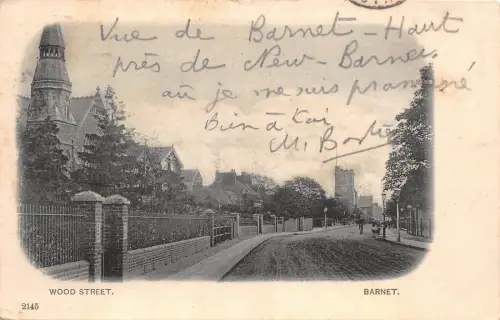 Vue de Barnet - Haut
près de New-Barnet
où je me suis promené
Bien à toi
M.
WOOD STREET.
BARNET.
2145